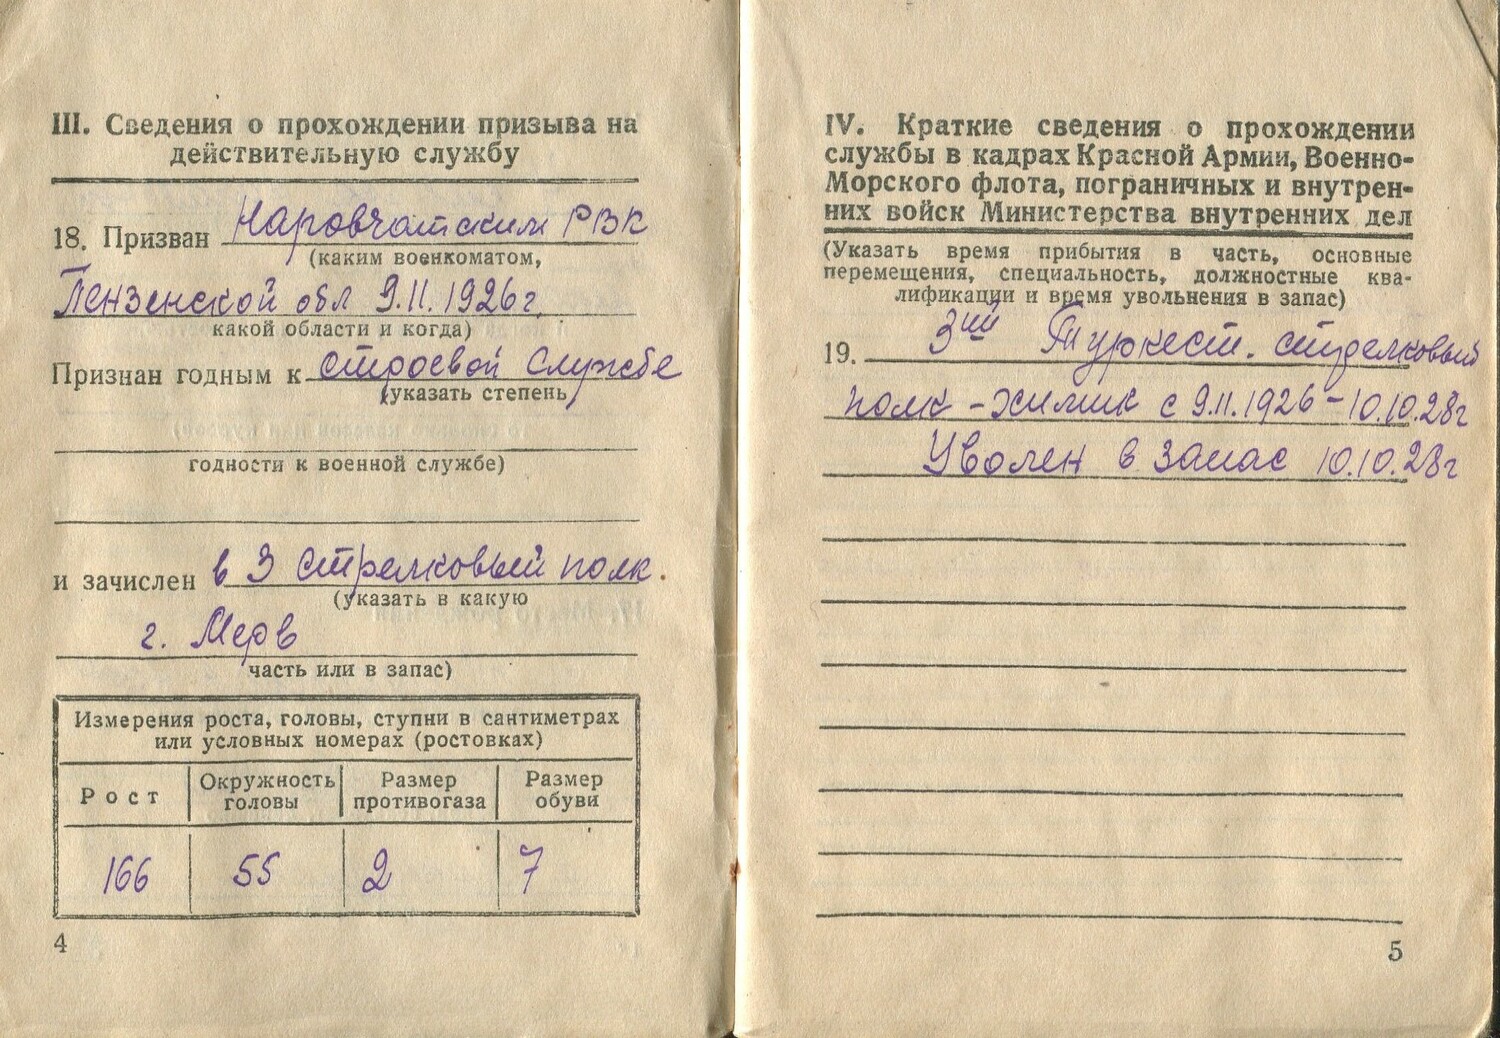 III. Сведения о прохождении призыва на
действительную службу
18. Призван Наровчатским РВК
(каким военкоматом,
Пензенской обл 9.11.1926г.
какой области и когда)
Признан годным к строевой службе
(указать степень
годности к военной службе)
и зачислен в 3 стрелковый полк.
(указать в какую
г. Мерв
часть или в запас)
Измерения роста, головы, ступни в сантиметрах
или условных номерах (ростовках)
Рост
Окружность
головы
Размер
противогаза
Размер
обуви
166 55 2 7
4
IV. Краткие сведения о прохождении
службы в кадрах Красной Армии, Военно-
Морского флота, пограничных и внутрен-
них войск Министерства внутренних дел
(Указать время прибытия в часть, основные
перемещения, специальность, должностные ква-
лификации и время увольнения в запас)
19. 3ий Туркест. стрелковый
полк - химик с 9.11.1926 - 10.10.28г
Уволен в запас 10.10.28г
5